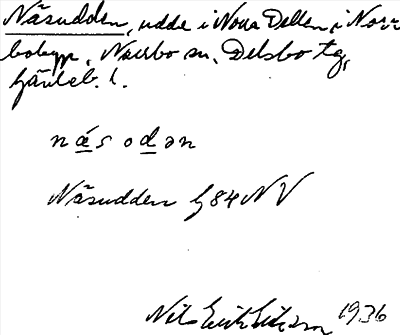 Näsudden, udde i Norra Dellen, i Norr
bobyn, Norrbo sn, Delsbo tg,
Gävleb. l.
näsodən
Näsudden G84 NV
Nils Erik Eriksson 1936